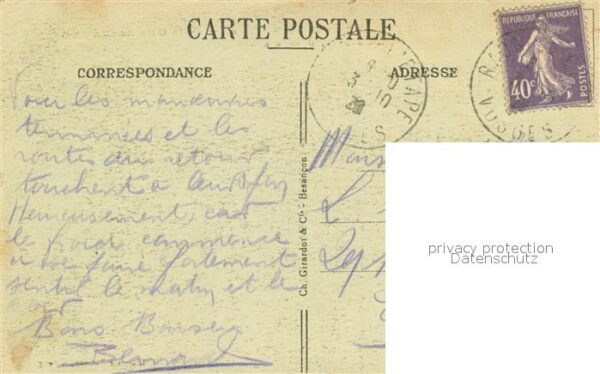 CARTE POSTALE
CORRESPONDANCE
ADRESSE
RÉPUBLIQUE FRANÇAISE
40c
POSTES
VOSGES
les manœuvres
terminées et les
routes du retour
touchent à leur fin
Heureusement car
le froid commence
à se faire fortement
sentir le matin et le
soir
Bons Baisers
Ch. Girardot & Cie - Besançon
privacy protection
Datenschutz